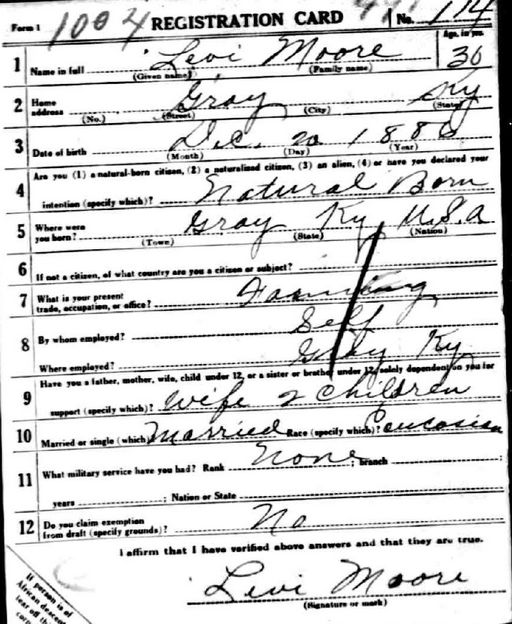 Form 1 1004 REGISTRATION CARD No. 114
1 Name in full Levi Moore Age, in yrs. 30
(Given name) (Family name)
2 Home address Gray Ky
(No.) (Street) (City) (State)
3 Date of birth Dec. 20 1886
(Month) (Day) (Year)
Are you (1) a natural-born citizen, (2) a naturalized citizen, (3) an alien, (4) or have you declared your
4 intention (specify which)? Natural Born
5 Where were you born? Gray Ky U.S.A
(Town) (State) (Nation)
6 If not a citizen, of what country are you a citizen or subject?
7 What is your present trade, occupation, or office? Farming
8 By whom employed? Self
Where employed? Gray Ky
9 Have you a father, mother, wife, child under 12, or a sister or brother under 12, solely dependent on you for
support (specify which)? Wife 2 Children
10 Married or single (which) Married Race (specify which)? Caucasian
11 What military service have you had? Rank None ; branch
years ; Nation or State
12 Do you claim exemption from draft (specify grounds)? No
I affirm that I have verified above answers and that they are true.
Levi Moore
(Signature or mark)
If person is of
African descent
tear off this